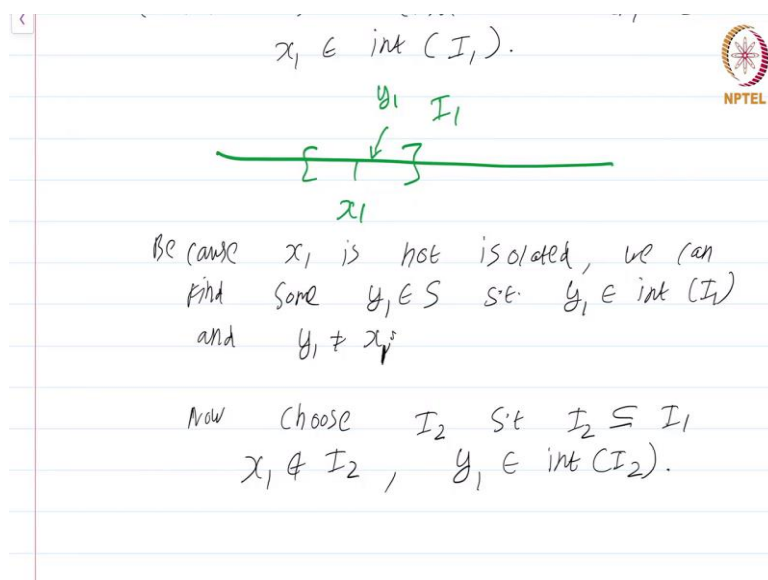 x₁ ∈ int (I₁).
NPTEL
y₁ I₁
x₁
Because x₁ is not isolated, we can
find some y₁ ∈ S s.t. y₁ ∈ int (I₁)
and y₁ ≠ x₁.
Now choose I₂ s.t I₂ ⊆ I₁
x₁ ∉ I₂ , y₁ ∈ int (I₂).